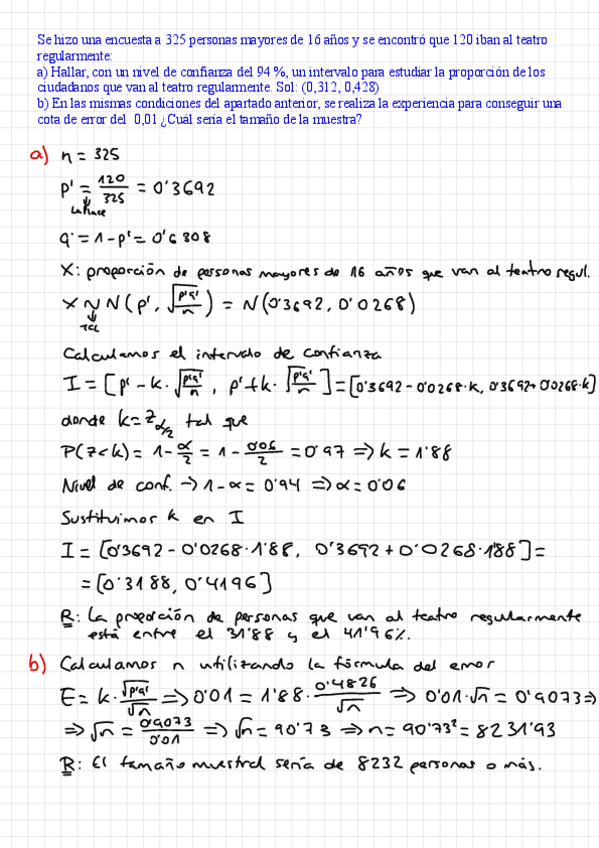 Se hizo una encuesta a 325 personas mayores de 16 años y se encontró que 120 iban al teatro
regularmente:
a) Hallar, con un nivel de confianza del 94 %, un intervalo para estudiar la proporción de los
ciudadanos que van al teatro regularmente. Sol: (0,312, 0,428)
b) En las mismas condiciones del apartado anterior, se realiza la experiencia para conseguir una
cota de error del 0,01 ¿Cuál sería el tamaño de la muestra?
a) n = 325
p' = 120/325 = 0'3692
Laplace
q' = 1 - p' = 0'6308
X: proporción de personas mayores de 16 años que van al teatro regul.
X ~ N(p', √(p'q'/n)) = N(0'3692, 0'0268)
TCL
Calculamos el intervalo de confianza
I = [p' - k · √(p'q'/n), p' + k · √(p'q'/n)] = [0'3692 - 0'0268·k, 0'3692 + 0'0268·k]
donde k = z_α/2 tal que
P(Z<k) = 1 - α/2 = 1 - 0'06/2 = 0'97 ⇒ k = 1'88
Nivel de conf. → 1 - α = 0'94 ⇒ α = 0'06
Sustituimos k en I
I = [0'3692 - 0'0268·1'88, 0'3692 + 0'0268·1'88] =
= [0'3188, 0'4196]
R: La proporción de personas que van al teatro regularmente
está entre el 31'88 y el 41'96%.
b) Calculamos n utilizando la fórmula del error
E = k · √p'q'/√n ⇒ 0'01 = 1'88 · 0'4826/√n ⇒ 0'01·√n = 0'9073 ⇒
⇒ √n = 0'9073/0'01 ⇒ √n = 90'73 ⇒ n = 90'73² = 8231'93
R: El tamaño muestral sería de 8232 personas o más.